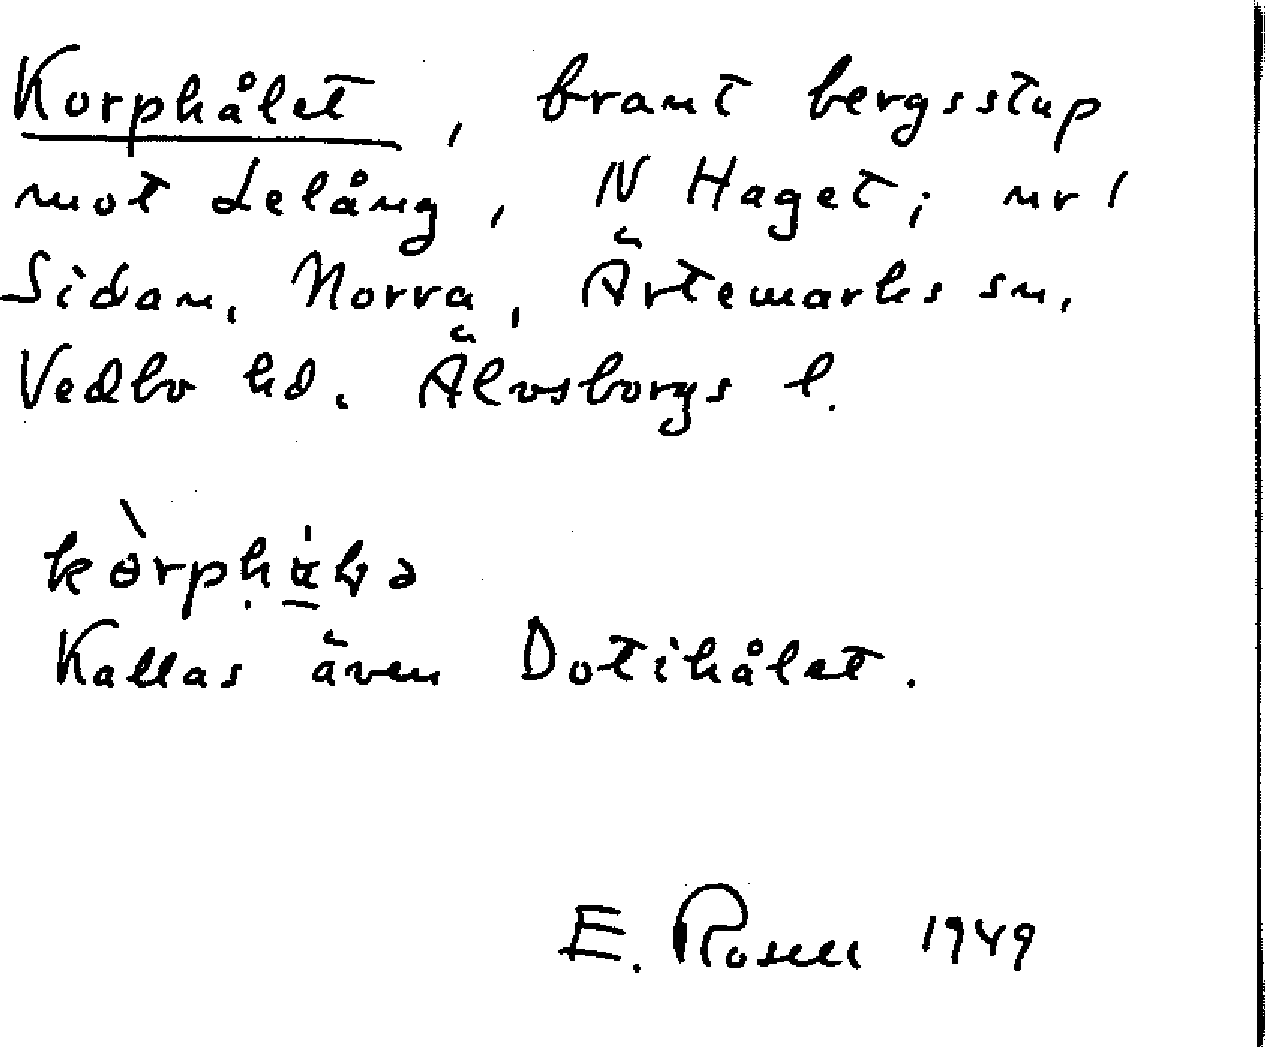 Korphålet, brant bergsstup
mot Lelång, N Haget; nr 1
Sidan, Norra, Ärtemarks sn,
Vedbo hd. Älvsborgs l.
Kallas även Dotihålet.
E. Rosell 1949